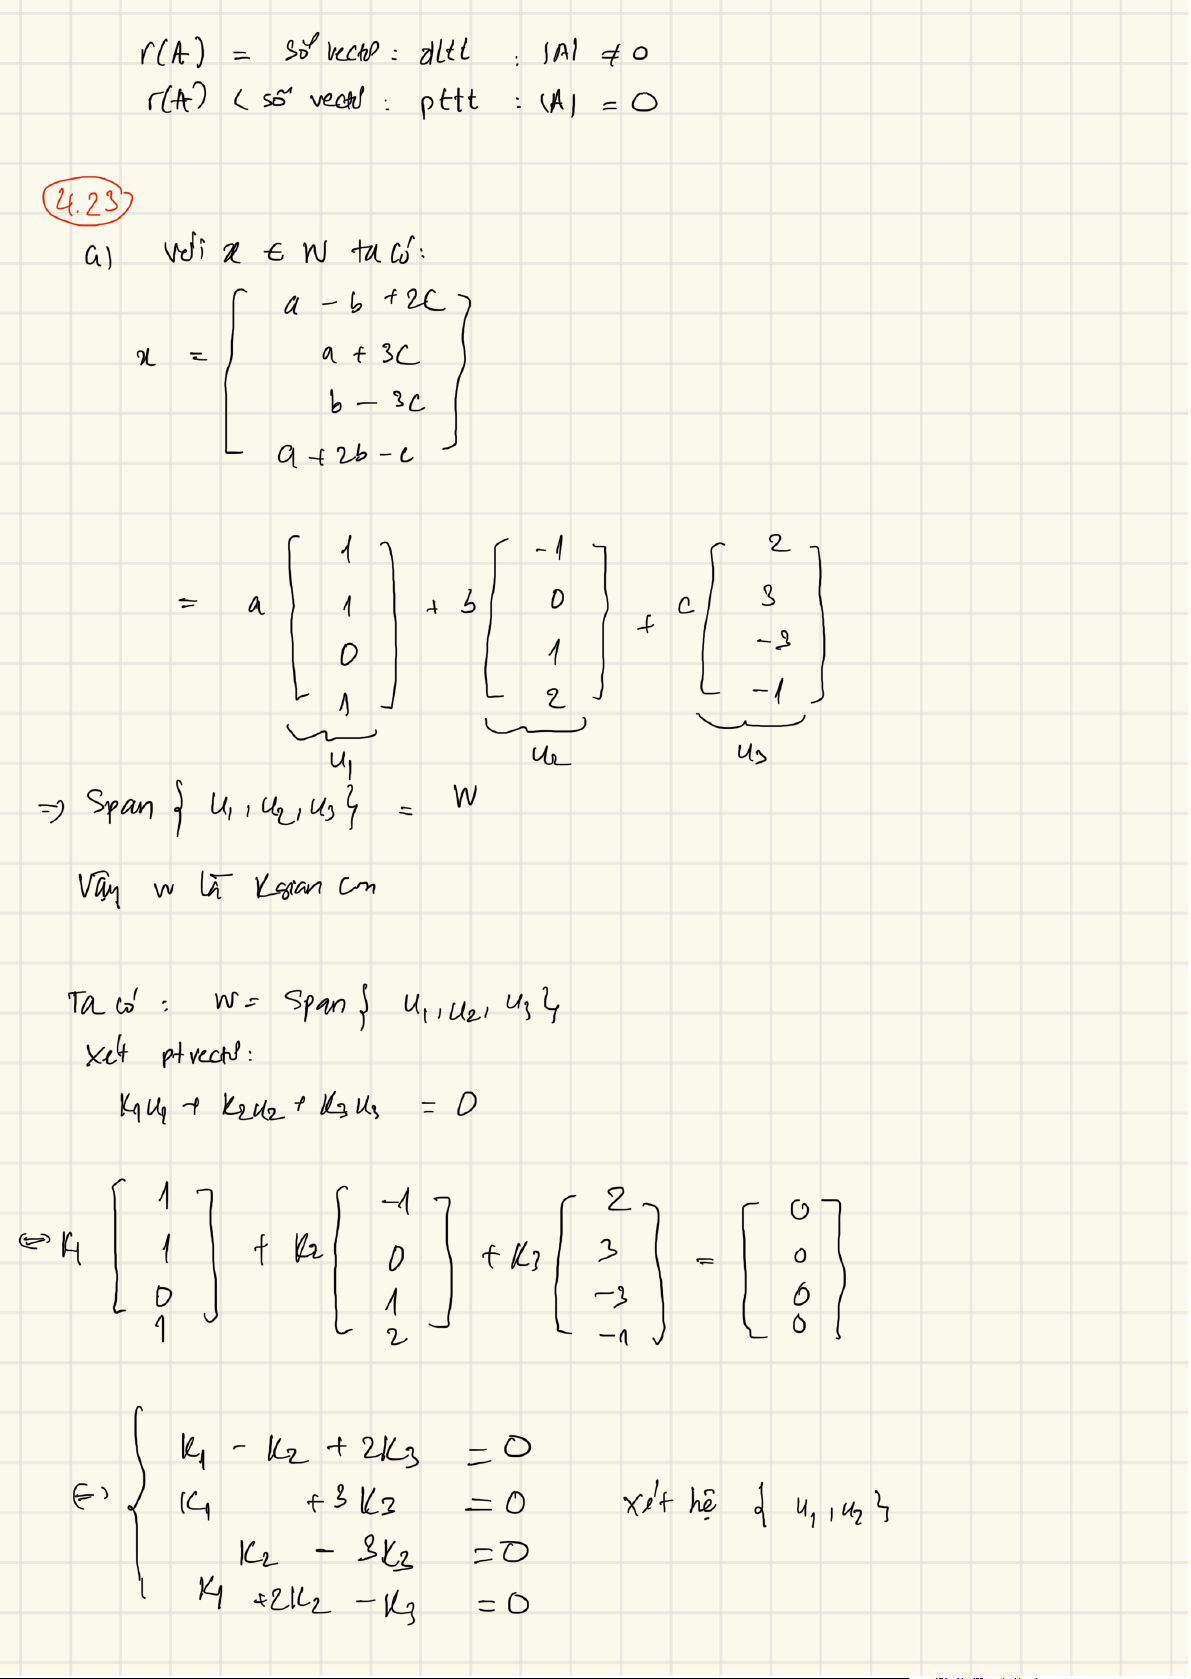 r(A) = số vectơ : đltt : |A| ≠ 0
r(A) < số vectơ : pttt : |A| = 0
4.23
a) với x ∈ W ta có:
x = [ a - b + 2c
a + 3c
b - 3c
a + 2b - c ]
= a [ 1 1 0 1 ] + b [ -1 0 1 2 ] + c [ 2 3 -3 -1 ]
u1 u2 u3
=> Span { u1, u2, u3 } = W
Vậy W là Kgian con
Ta có : W = Span { u1, u2, u3 }
Xét pt vectơ:
K1u1 + K2u2 + K3u3 = 0
<=> K1 [ 1 1 0 1 ] + K2 [ -1 0 1 2 ] + K3 [ 2 3 -3 -1 ] = [ 0 0 0 0 ]
<=> { K1 - K2 + 2K3 = 0
K1 + 3K3 = 0 xét hệ { u1, u2 }
K2 - 3K3 = 0
K1 + 2K2 - K3 = 0